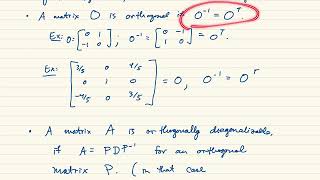 • A matrix O is orthogonal if O⁻¹ = Oᵀ.
Ex: O = [0 1; -1 0] ; O⁻¹ = [0 -1; 1 0] = Oᵀ.
Ex: [3/5 0 4/5; 0 1 0; -4/5 0 3/5] = O, O⁻¹ = Oᵀ
• A matrix A is orthogonally diagonalizable,
if A = PDP⁻¹ for an orthogonal
matrix P. (in that case